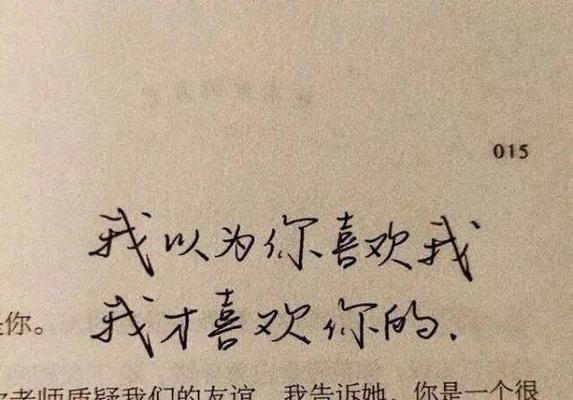 015
我以为你喜欢我
我才喜欢你的.
是你。
老师质疑我们的友谊，我告诉她，你是一个很